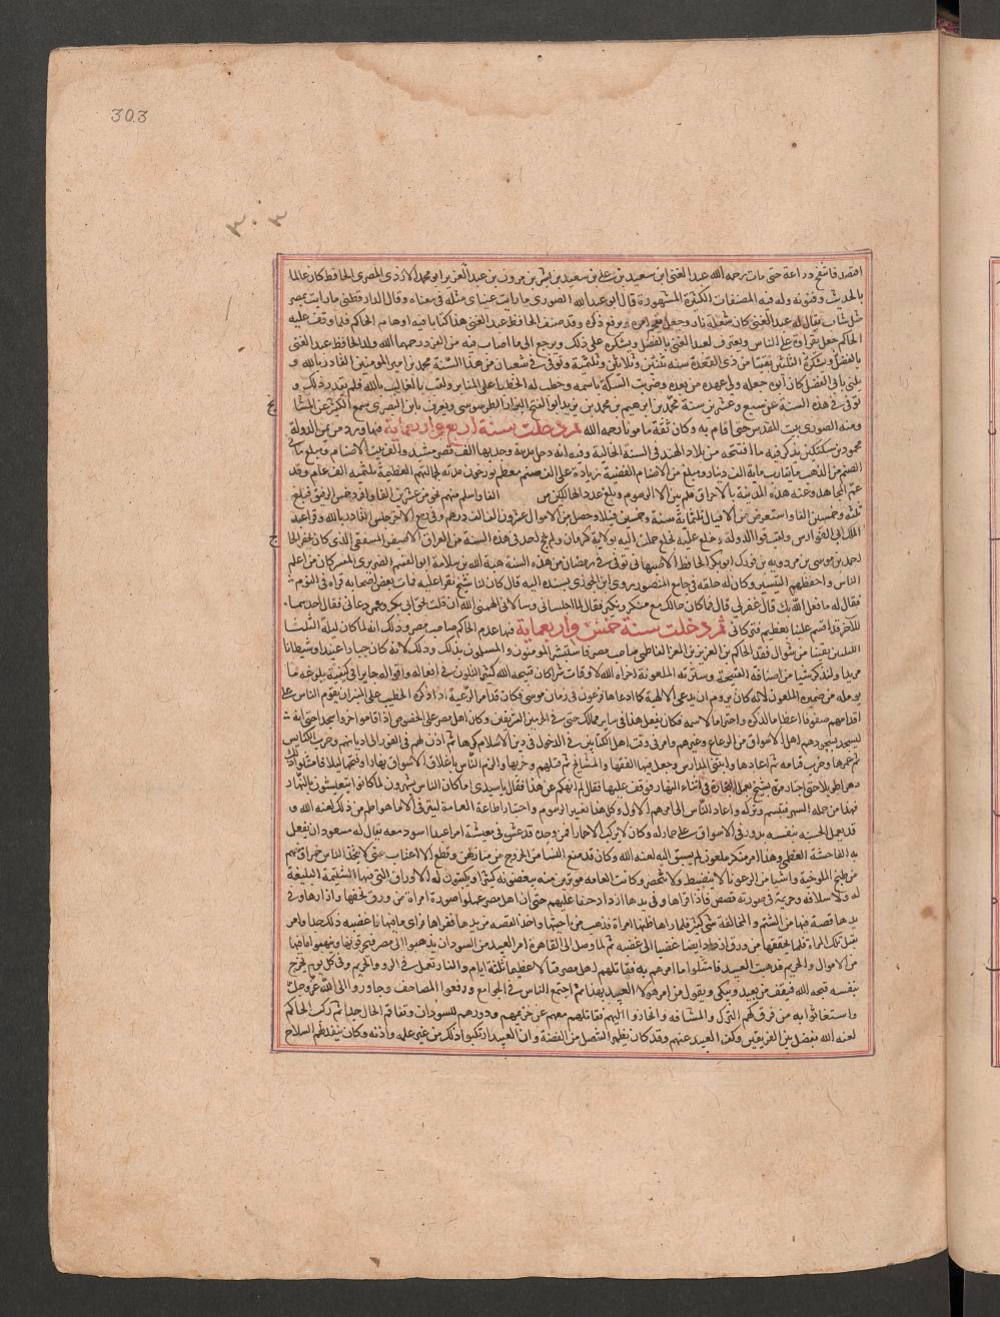 303
٣٠٣
حتى مات رحمه الله عبد الغنى بن سعيد بن على بن سعيد بن بشر بن مروان بن عبد العزيز ابو محمد الازدى المصرى الحافظ كان عالما
بالحديث وفنونه وله فيه المصنفات الكثيرة المشهورة قال ابو عبد الله الصورى ما رايت عيناى مثله فى معناه وقال الدارقطنى ما رايت بمصر
مثل شاب يقال له عبد الغنى كانه شعلة نار وجعل يفخم امره ويرفع ذكره وقد صنف الحافظ عبد الغنى هذا كتابا فيه اوهام الحاكم فلما وقف عليه
الحاكم جعل يقراه على الناس ويعترف لعبد الغنى بالفضل ويشكره على ذلك ويرجع الى ما اصاب فيه من الرد رحمهما الله ولد الحافظ عبد الغنى
من ذى القعدة سنة ثنتين وثلاثين وثلثمية وتوفى فى من هذه السنة محمد بن امير المومنين القادر بالله و
كان ابوه جعله ولى عهده من بعده وضربت السكة باسمه وخطب له الخطبا على المنابر ولقب بالغالب بالله فلم يقدر ذلك و
توفى فى هذه السنة عن سبع وعشرين سنة محمد بن ابراهيم بن محمد بن يزيد ابو الفتح البزاز الطرسوسى ويعرف بابن البصرى سمع الكثير من المشا
يخ
ومنه الصورى ببيت المقدس حين اقام به وكان ثقة مامونا رحمه الله ثم دخلت سنة اربع واربعماية فيها ورد من يمين الدولة
محمود بن سبكتكين يذكر فيه ما افتتحه من بلاد الهند فى السنة الخالية وفيه انه دخل مدينة وجد بها الف قصر مشيد والف بيت للاصنام ومبلغ ما فى
الصنم من الذهب ما يقارب ماية الف دينار ومبلغ من الاصنام الفضة زيادة على الف صنم معظم يورخون مدته
هذه المدينة بالاحراق فلم يبق الا الرسوم وبلغ عدد الهالكين من الفا واسلم منهم نحو من عشرين الفا وافرد خمس الرقيق فبلغ
ثلثه وخمسين الفا واستعرض من الافيال ثلثماية سنة وخمسين فيلا وحصل من الاموال عشرون الف الف درهم وفى ربيع الاخر جلس القادر بالله
الملك ابى الفوارس ولقبه قوام الدولة وخلع عليه خلع حملت اليه بولاية كرمان ولم يحج احد فى هذه السنة من العراق
ج
احمد بن موسى بن مردويه بن فورك ابو بكر الحافظ الاصبهانى توفى فى رمضان من هذه السنة هبة الله بن سلامة ابو القسم الضرير المفسر كان من اعلم
الناس واحفظهم للتفسير وكان له حلقة فى جامع المنصور روى ابن الجوزى بسنده اليه قال كان لنا شيخ نقرا عليه فمات بعض اصحابه فراه فى النوم
فقال له ما فعل الله بك قال غفر لى قال فما كان حالك مع منكر ونكير فقال لما اجلسانى وسالانى الهمنى الله ان قلت بحق ابى بكر وعمر دعانى فقال احدهما
للاخر قد اقسم علينا بعظيم فتركانى ثم دخلت سنة خمس واربعماية فيها عدم الحاكم صاحب مصر وذلك انه لما كان ليلة الثلثا
لليلتين بقيتا من شوال فقد الحاكم بن العزيز بن المعز الفاطمى صاحب مصر فاستبشر المومنون والمسلمون بذلك وذلك لانه كان جبارا عنيدا وشيطانا
مريدا ولنذكر شيا من صفاته القبيحة وسيرته الملعونة اخزاه الله
كان يروم ان يدعى الالهية كما ادعاها فرعون فى زمان موسى فكان قد امر الرعية اذا ذكره الخطيب على المنبر ان يقوم الناس على
اقدامهم صفوفا اعظاما لذكره واحتراما لاسمه فكان يفعل هذا فى ساير ممالكه حتى فى الحرمين الشريفين وكان اهل مصر على الخصوص اذا قاموا خروا سجدا حتى انه
ليسجد بسجودهم اهل الاسواق من الرعاع وغيرهم وامر فى وقت اهل الكتابين فى الدخول فى دين الاسلام كرها ثم اذن لهم فى العود الى اديانهم وخرب الكنايس
ثم عمرها وخرب قمامه ثم اعادها وابتنى المدارس وجعل فيها الفقها والمشايخ ثم قتلهم وخربها والزم الناس باغلاق الاسواق نهارا وفتحها ليلا فامتثلوا ذلك
دهرا طويلا حتى اجتاز مرة بشيخ يعمل النجارة فى اثناء النهار فوقف عليه فقال الم انهكم عن هذا فقال يا سيدى اما كان الناس يسهرون لما كانوا يتعيشون بالنهار
فهذا من جملة السهر فتبسم وتركه واعاد الناس الى امرهم الاول وكل هذا تغيير الرسوم واختبار لطاعة العامة ليترقى الى ما هو اطم من ذلك لعنه الله و
قد يعمل الحسبة بنفسه يدور فى الاسواق على حمار له وكان لا يركب الا حمارا فمن وجده قد غش فى معيشة امر عبدا اسود معه يقال له مسعود ان يفعل
به الفاحشة العظمى وهذا امر منكر ملعون لم يسبق اليه لعنه الله وكان قد منع النسا من الخروج من منازلهن وقطع الاعناب حتى لا يتخذ الناس خمرا ومنعهم
من طبخ الملوخية واشيا من الرعونات لا ينضبط ولا ينحصر وكانت العامة موتورين منه يبغضونه كثيرا ويكتبون له الاوراق التى فيها الشتيمة البليغة
له ولاسلافه وحريمه فى صورة قصص فاذا قراها وفى يدها ازداد حنقا عليهم حتى ان اهل مصر عملوا صورة امراة من ورق بخفها وازارها وفى
يدها قصة فيها من الشتم والمخالفة شى كثير فلما راها ظنها امراة فذهب من ناحيتها واخذ القصة من يدها فقراها فراى ما فيها فاغضبه ذلك جدا وامر
بقتل تلك المراة فلما تحققها من ورق ازداد ايضا غضبا الى غضبه ثم لما وصل الى القاهرة امر العبيد من السودان ان يذهبوا الى مصر فيحرقوها وينهبوا ما فيها
من الاموال والحريم فذهبت العبيد فامتثلوا ما امرهم به فقاتلهم اهل مصر قتالا عظيما ثلثة ايام والنار تعمل فى الدور والحريم وفى كل يوم يخرج
بنفسه قبحه الله فيقف من بعيد ويبكى ويقول من امر هولاء العبيد بهذا ثم اجتمع الناس فى الجوامع ورفعوا المصاحف وجاروا الى الله عز وجل
واستغاثوا به من فرق لهم الترك والمشارقة وانحازوا اليهم فقاتلهم معهم عن حريمهم ودورهم للسودان وتفاقم الحال جدا ثم ركب الحاكم
لعنه الله يفصل بين الفريقين وكف العبيد عنهم وقد كان يظهر التنصل من القصة وان العبيد ارتكبوا ذلك من غير علمه واذنه وكان ينفذ لهم السلاح